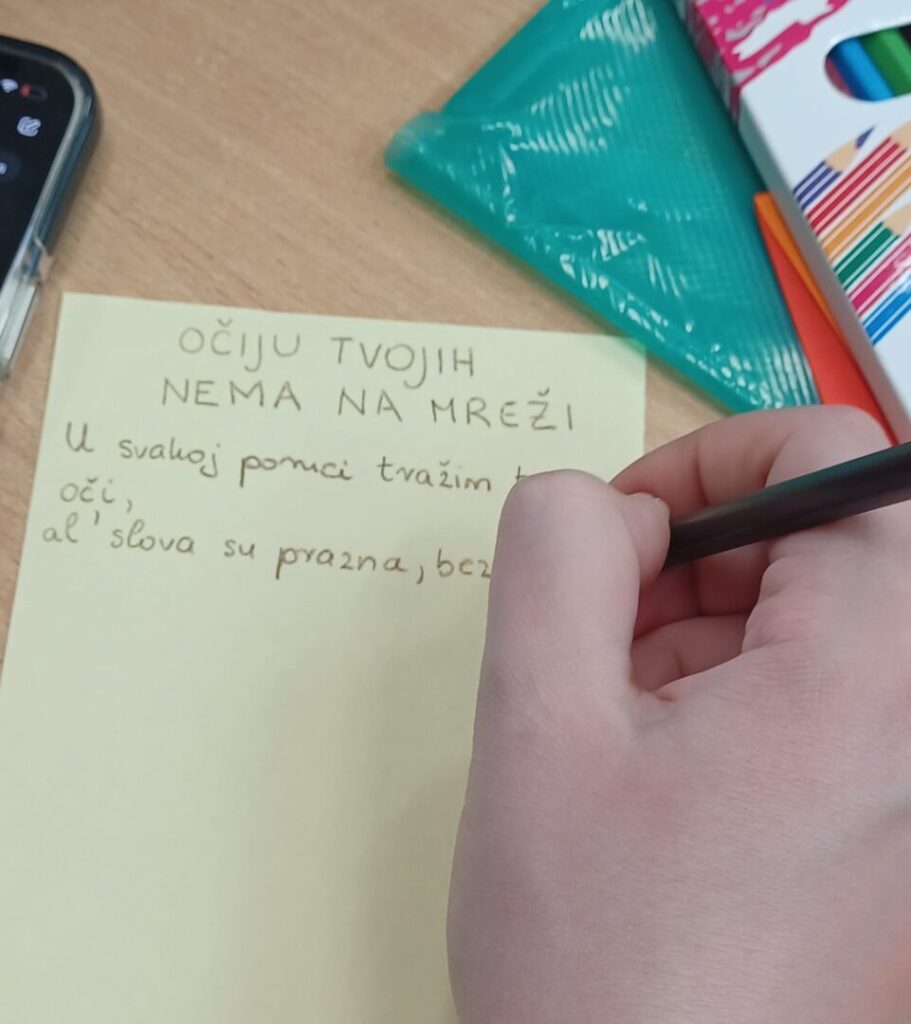 OČIJU TVOJIH
NEMA NA MREŽI
U svakoj poruci tražim
oči,
al' slova su prazna, bez